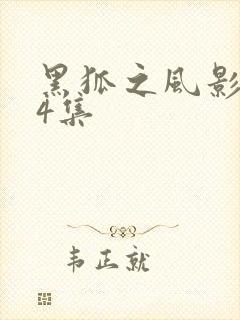 黑狐之風影
4集
韦正就